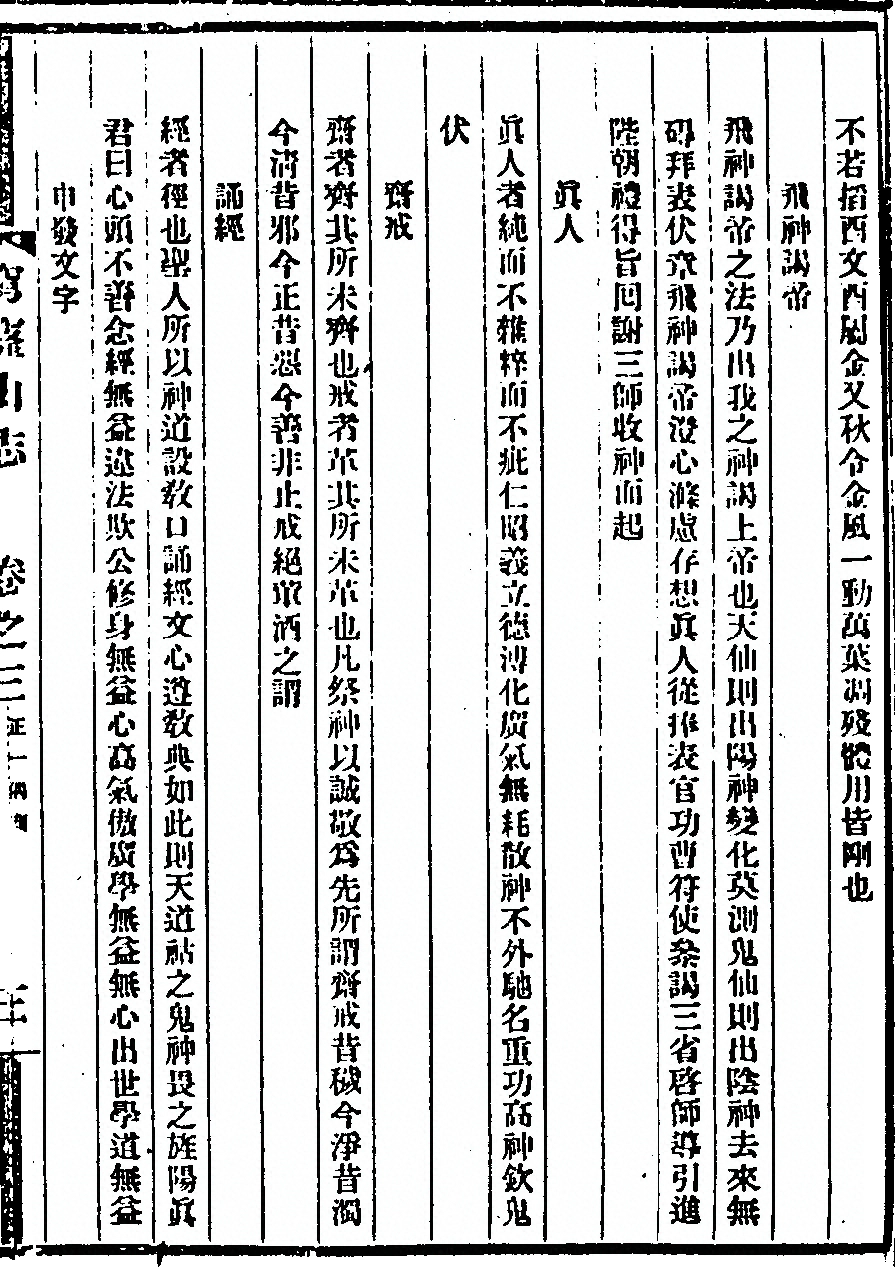 不若搯酉文酉屬金又秋令金風一動萬葉凋殘體用皆剛也
飛神謁帝
飛神謁帝之法乃出我之神謁上帝也天仙則出陽神變化莫測鬼仙則出陰神去來無
碍拜表伏章飛神謁帝澄心滌慮存想眞人從拜表官功曹符使叅謁三省啓師導引進
陛朝禮得旨回謝三師收神而起
眞人
眞人者純而不雜粹而不疵仁昭義立德溥化廣氣無耗散神不外馳名重功高神欽鬼
伏
齋戒
齋者齊其所未齊也戒者革其所未革也凡祭神以誠敬爲先所謂齋戒昔穢今淨昔濁
今淸昔邪今正昔惡今善非止戒絕葷酒之謂
誦經
經者徑也聖人所以神道設敎口誦經文心遵敎典如此則天道祐之鬼神畏之旌陽眞
君曰心頭不善念經無益違法欺公修身無益心高氣傲廣學無益無心出世學道無益
申發文字
山志 卷之三 正一